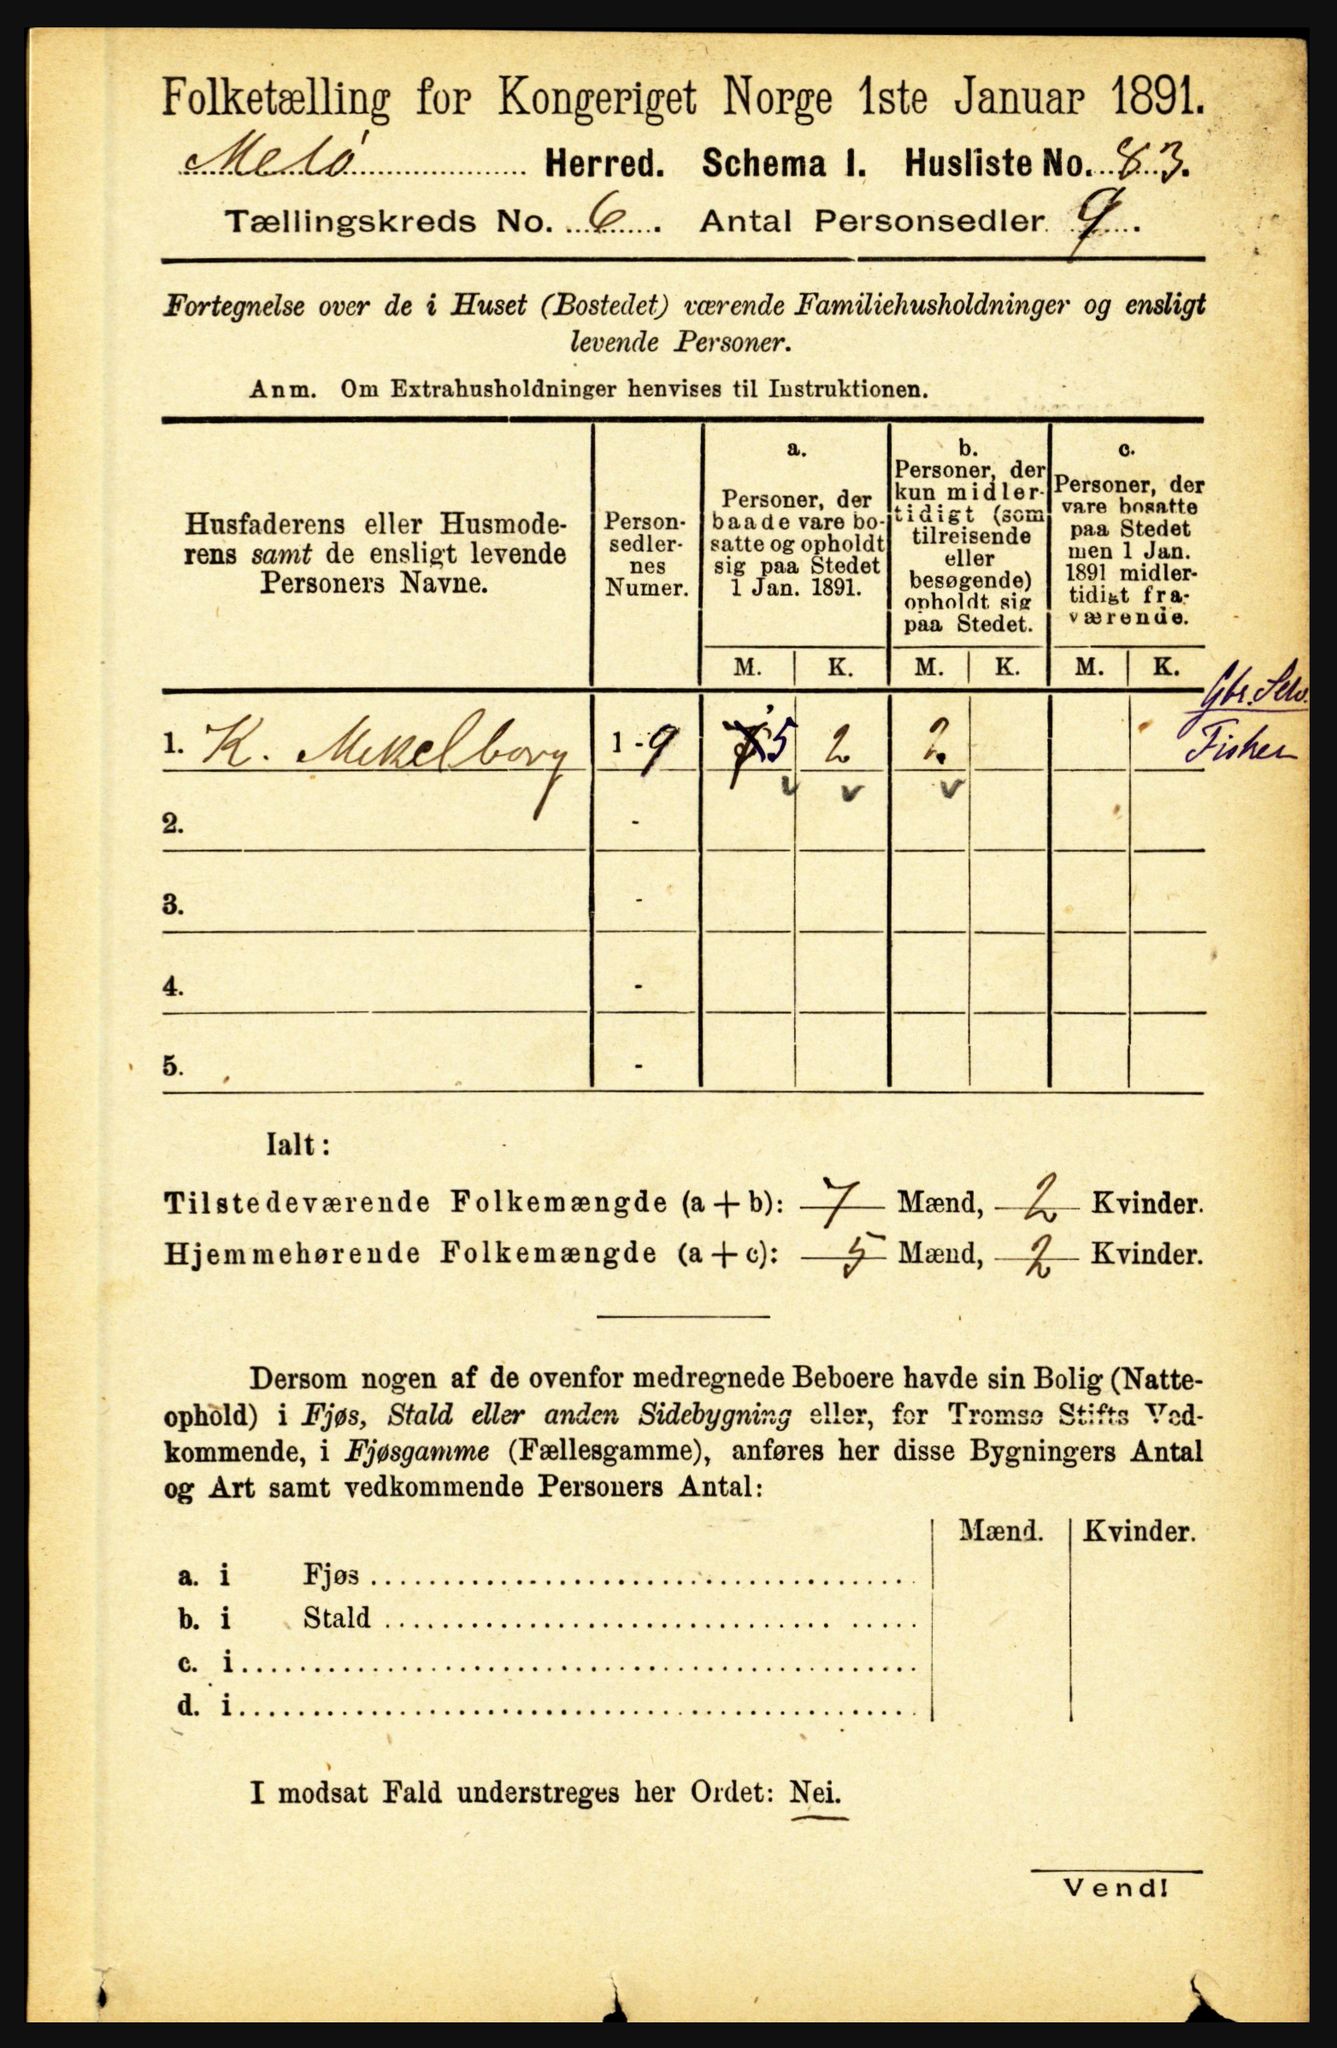 Folketælling for Kongeriget Norge 1ste Januar 1891.
Melø Herred. Schema I. Husliste No. 83.
Tællingskreds No. 6. Antal Personsedler 9.
Fortegnelse over de i Huset (Bostedet) værende Familiehusholdninger og ensligt
levende Personer.
Anm. Om Extrahusholdninger henvises til Instruktionen.
Husfaderens eller Husmode-
rens samt de ensligt levende
Personers Navne.
Person-
sedler-
nes
Numer.
a.
Personer, der
baade vare bo-
satte og opholdt
sig paa Stedet
1 Jan. 1891.
b.
Personer, der
kun midler-
tidigt (som
tilreisende
eller
besøgende)
opholdt sig
paa Stedet.
c.
Personer, der
vare bosatte
paa Stedet
men 1 Jan.
1891 midler-
tidigt fra-
værende.
M. K. M. K. M. K.
Gbr. Selv.
1. K. Mekelborg 1-9 5 2 2 Fisker
2. -
3. -
4. -
5. -
Ialt:
Tilstedeværende Folkemængde (a + b): 7 Mænd, 2 Kvinder.
Hjemmehørende Folkemængde (a + c): 5 Mænd, 2 Kvinder.
Dersom nogen af de ovenfor medregnede Beboere havde sin Bolig (Natte-
ophold) i Fjøs, Stald eller anden Sidebygning eller, for Tromsø Stifts Ved-
kommende, i Fjøsgamme (Fællesgamme), anføres her disse Bygningers Antal
og Art samt vedkommende Personers Antal:
Mænd. Kvinder.
a. i Fjøs
b. i Stald
c. i
d. i
I modsat Fald understreges her Ordet: Nei.
Vend!